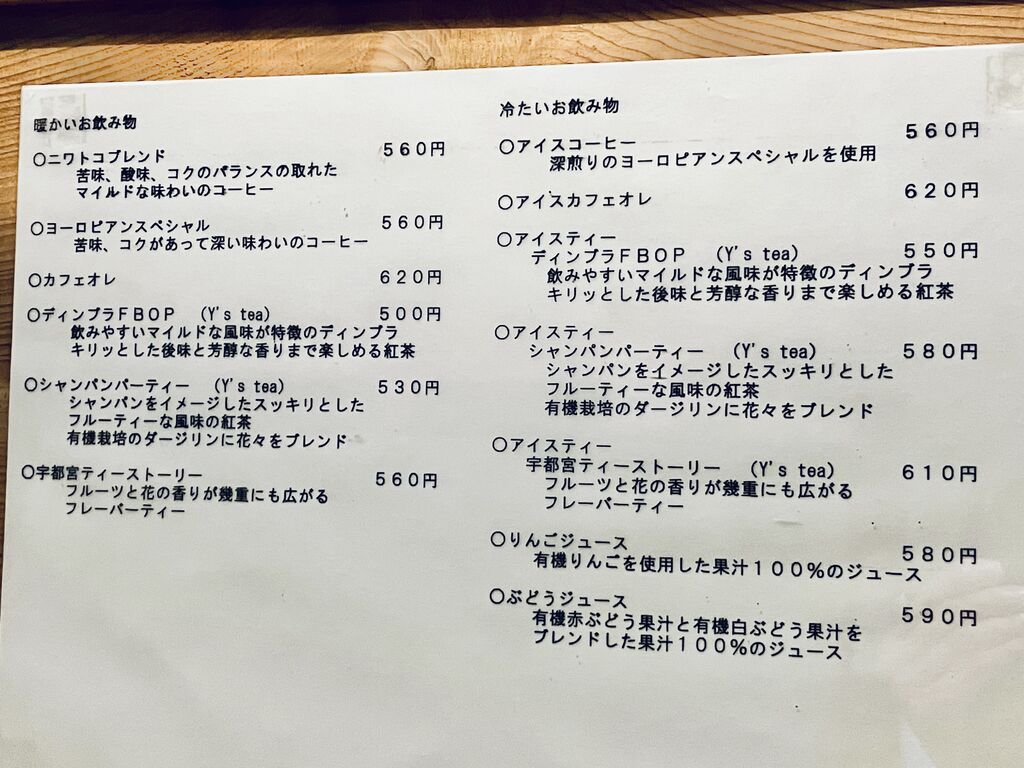 暖かいお飲み物
○ニワトコブレンド　560円
苦味、酸味、コクのバランスの取れた
マイルドな味わいのコーヒー
○ヨーロピアンスペシャル　560円
苦味、コクがあって深い味わいのコーヒー
○カフェオレ　620円
○ディンブラＦＢＯＰ　（Y's tea）　500円
飲みやすいマイルドな風味が特徴のディンブラ
キリッとした後味と芳醇な香りまで楽しめる紅茶
○シャンパンパーティー　（Y's tea）　530円
シャンパンをイメージしたスッキリとした
フルーティーな風味の紅茶
有機栽培のダージリンに花々をブレンド
○宇都宮ティーストーリー　560円
フルーツと花の香りが幾重にも広がる
フレーバーティー
冷たいお飲み物
○アイスコーヒー　560円
深煎りのヨーロピアンスペシャルを使用
○アイスカフェオレ　620円
○アイスティー
ディンブラＦＢＯＰ　（Y's tea）　550円
飲みやすいマイルドな風味が特徴のディンブラ
キリッとした後味と芳醇な香りまで楽しめる紅茶
○アイスティー
シャンパンパーティー　（Y's tea）　580円
シャンパンをイメージしたスッキリとした
フルーティーな風味の紅茶
有機栽培のダージリンに花々をブレンド
○アイスティー
宇都宮ティーストーリー　（Y's tea）　610円
フルーツと花の香りが幾重にも広がる
フレーバーティー
○りんごジュース　580円
有機りんごを使用した果汁１００％のジュース
○ぶどうジュース　590円
有機赤ぶどう果汁と有機白ぶどう果汁を
ブレンドした果汁１００％のジュース